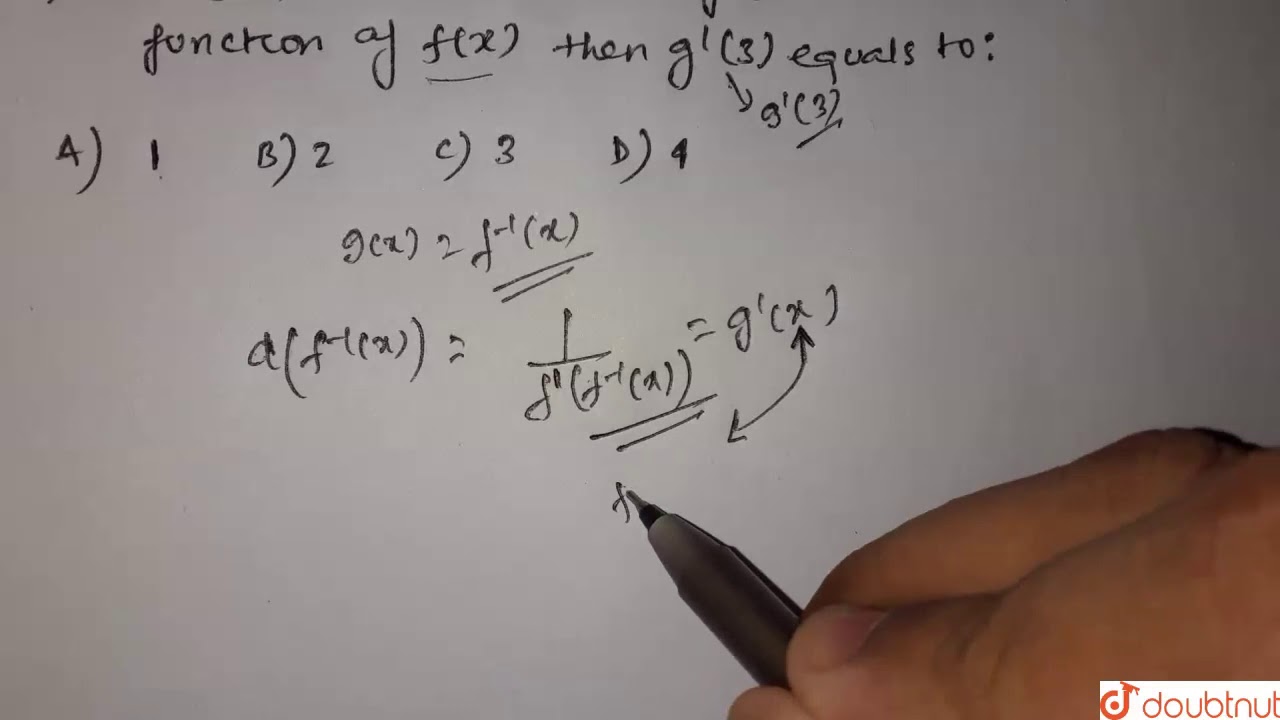 function of f(x) then g'(3) equals to:
g'(3)
A) 1 B) 2 C) 3 D) 4
g(x) = f⁻¹(x)
d(f⁻¹(x)) = 1/f'(f⁻¹(x)) = g'(x)
f
doubtnut